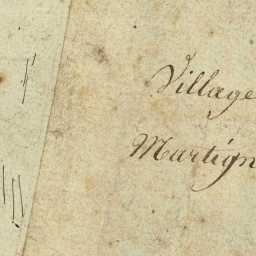 Village
Martign